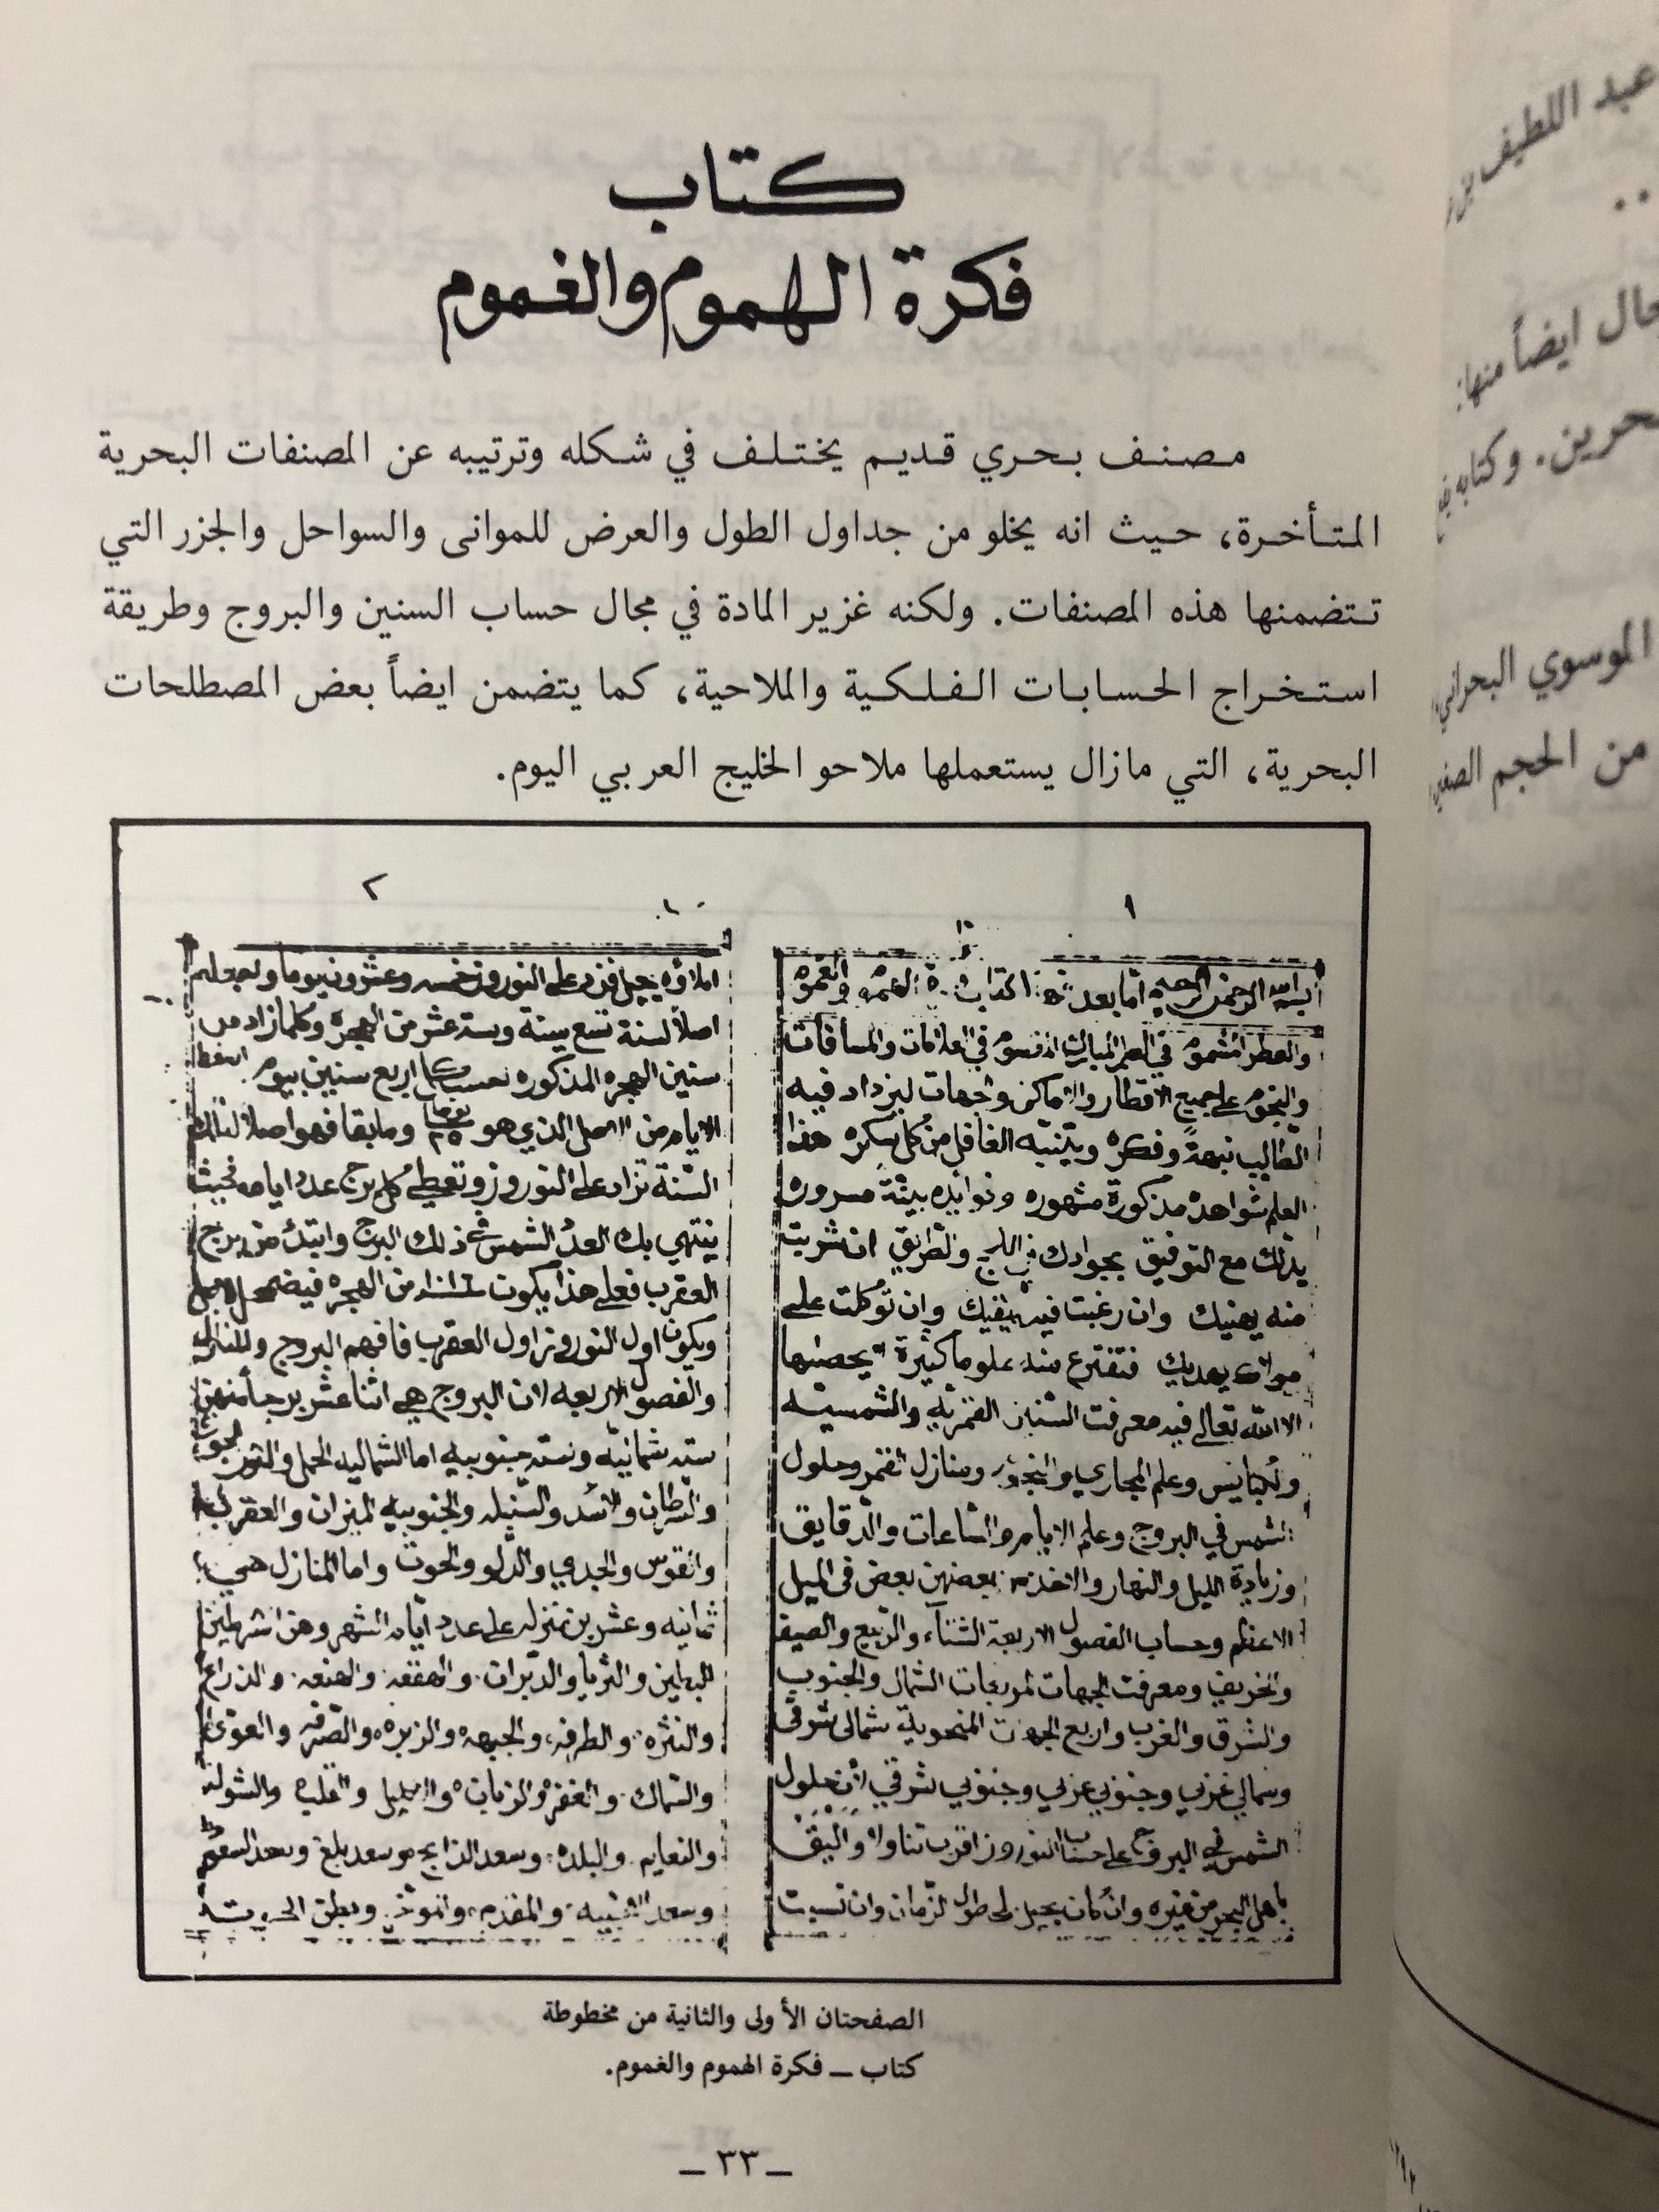 كتاب
فكرة الهموم والغموم
مصنف بحري قديم يختلف في شكله وترتيبه عن المصنفات البحرية
المتأخرة، حيث انه يخلو من جداول الطول والعرض للموانى والسواحل والجزر التي
تتضمنها هذه المصنفات. ولكنه غزير المادة في مجال حساب السنين والبروج وطريقة
استخراج الحسابات الفلكية والملاحية، كما يتضمن ايضاً بعض المصطلحات
البحرية، التي مازال يستعملها ملاحو الخليج العربي اليوم.
١
بسم الله الرحمن الرحيم أما بعد
والعطر المشموم في العلم المبارك في العلامات والمسافات
والنجوم على جميع الاقطار والاماكن وجهات ليزداد فيه
الطالب نبهة وفكره ويتنبه الغافل من كل سكره هذا
العلم شواهده مذكورة مشهوره وفوايده بيئة مسروره
بذلك مع التوفيق والطريق ان شربت
منه يهنيك وان رغبت فيه وان توكلت على
مولاك يهديك فتفترع منه علوما كثيرة لا يحصيها
الا الله تعالى فيه معرفت السنين القمريه والشمسيه
والكبايس وعلم المجاري والنجوم ومنازل القمر وحلول
الشمس في البروج وعلم الايام والساعات والدقايق
وزيادة الليل والنهار والاخذ من بعضهن بعض في الميل
الاعظم وحساب الفصول الاربعة الشتاء والربيع والصيف
والخريف ومعرفت الجهات لمربعات الشمال والجنوب
والشرق والغرب واربع الجهات شمالي شرقي
وشمالي غربي وجنوبي غربي وجنوبي شرقي لأن حلول
الشمس في البروج على حساب النوروز اقرب تناولا واليق
باهل البحر من غيره وان كان يحيل لمى طول الزمان وان نسيت
٢
على النوروز خمسه وعشرون يوما
اصلاً لسنة تسع مية وسته عشر من الهجرة وكلما زاد من
سنين الهجره المذكوره تحسب كل اربع سنين بيوم
الايام من الاصل الذي هو ٢٥ يوما وما بقا فهو اصلا لتلك
السنة تزاد على النوروز وتعطي كل برج عدد ايامه فحيث
ينتهي بك العدد الشمس في ذلك البرج وابتدئ من برج
العقرب فعلى هذا يكون من الهجره فيضمحل الاصل
ويكون اول النوروز اول العقرب فافهم البروج والمنازل
والفصول الاربعه لان البروج هي اثنا عشر برجاً منهن
سته شمالية وسته جنوبيه اما الشماليه الحمل والثور
والسرطان والاسد والسنبله والجنوبيه الميزان والعقرب
والقوس والجدي والدلو والحوت واما المنازل هي
ثمانيه وعشرين منزله على عدد أيام الشهر وهن الشرطين
البطين والثريا والدبران والهقعه والهنعه والذراع
والنثره والطرفه والجبهه والزبره والصرفه والعوى
والسماك والغفر والزبان والاكليل والقلب والشوله
والنعايم والبلده وسعد الذابح وسعد بلع وسعد السعود
وسعد الاخبيه والمقدم والموخر وبطن الحوت
الصفحتان الأولى والثانية من مخطوطة
كتاب ــ فكرة الهموم والغموم.
ــ ٣٣ ــ
عبد اللطيف بن
ايضاً منها:
وكتابه
الموسوي البحراني
من الحجم